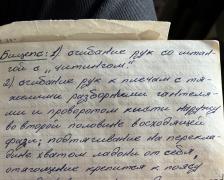 Бицепс: 1) сгибание рук со штан-
гой с „читингом”
2) сгибание рук к плечам с тя-
жёлыми разборными гантеля-
ми и проворотом кисти наружу
во второй половине восходящей
фазы; подтягивание на перекла-
дине хватом ладони от себя,
отягощение крепится к поясу